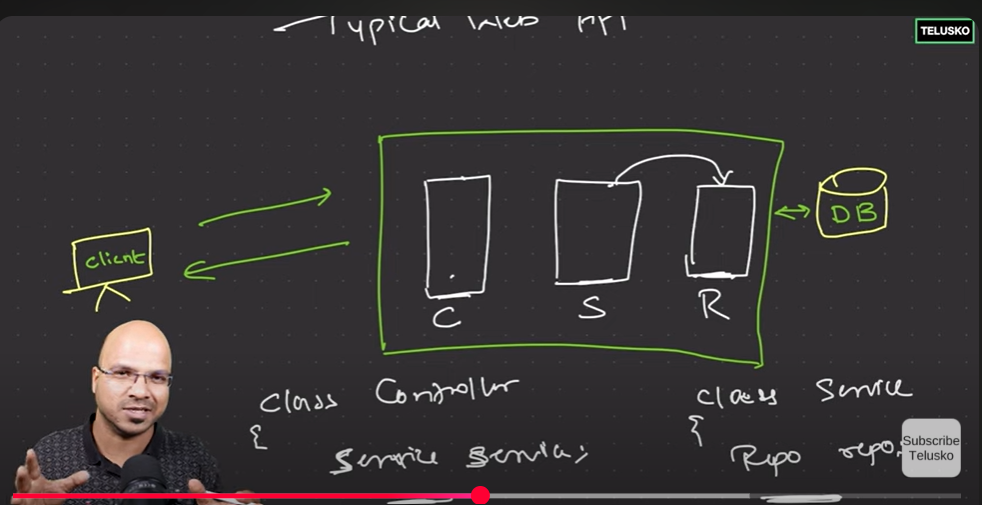 Typical Web API
TELUSKO
client
DB
C S R
class Controller
{
Service service;
class Service
{
Repo repo;
Subscribe
Telusko